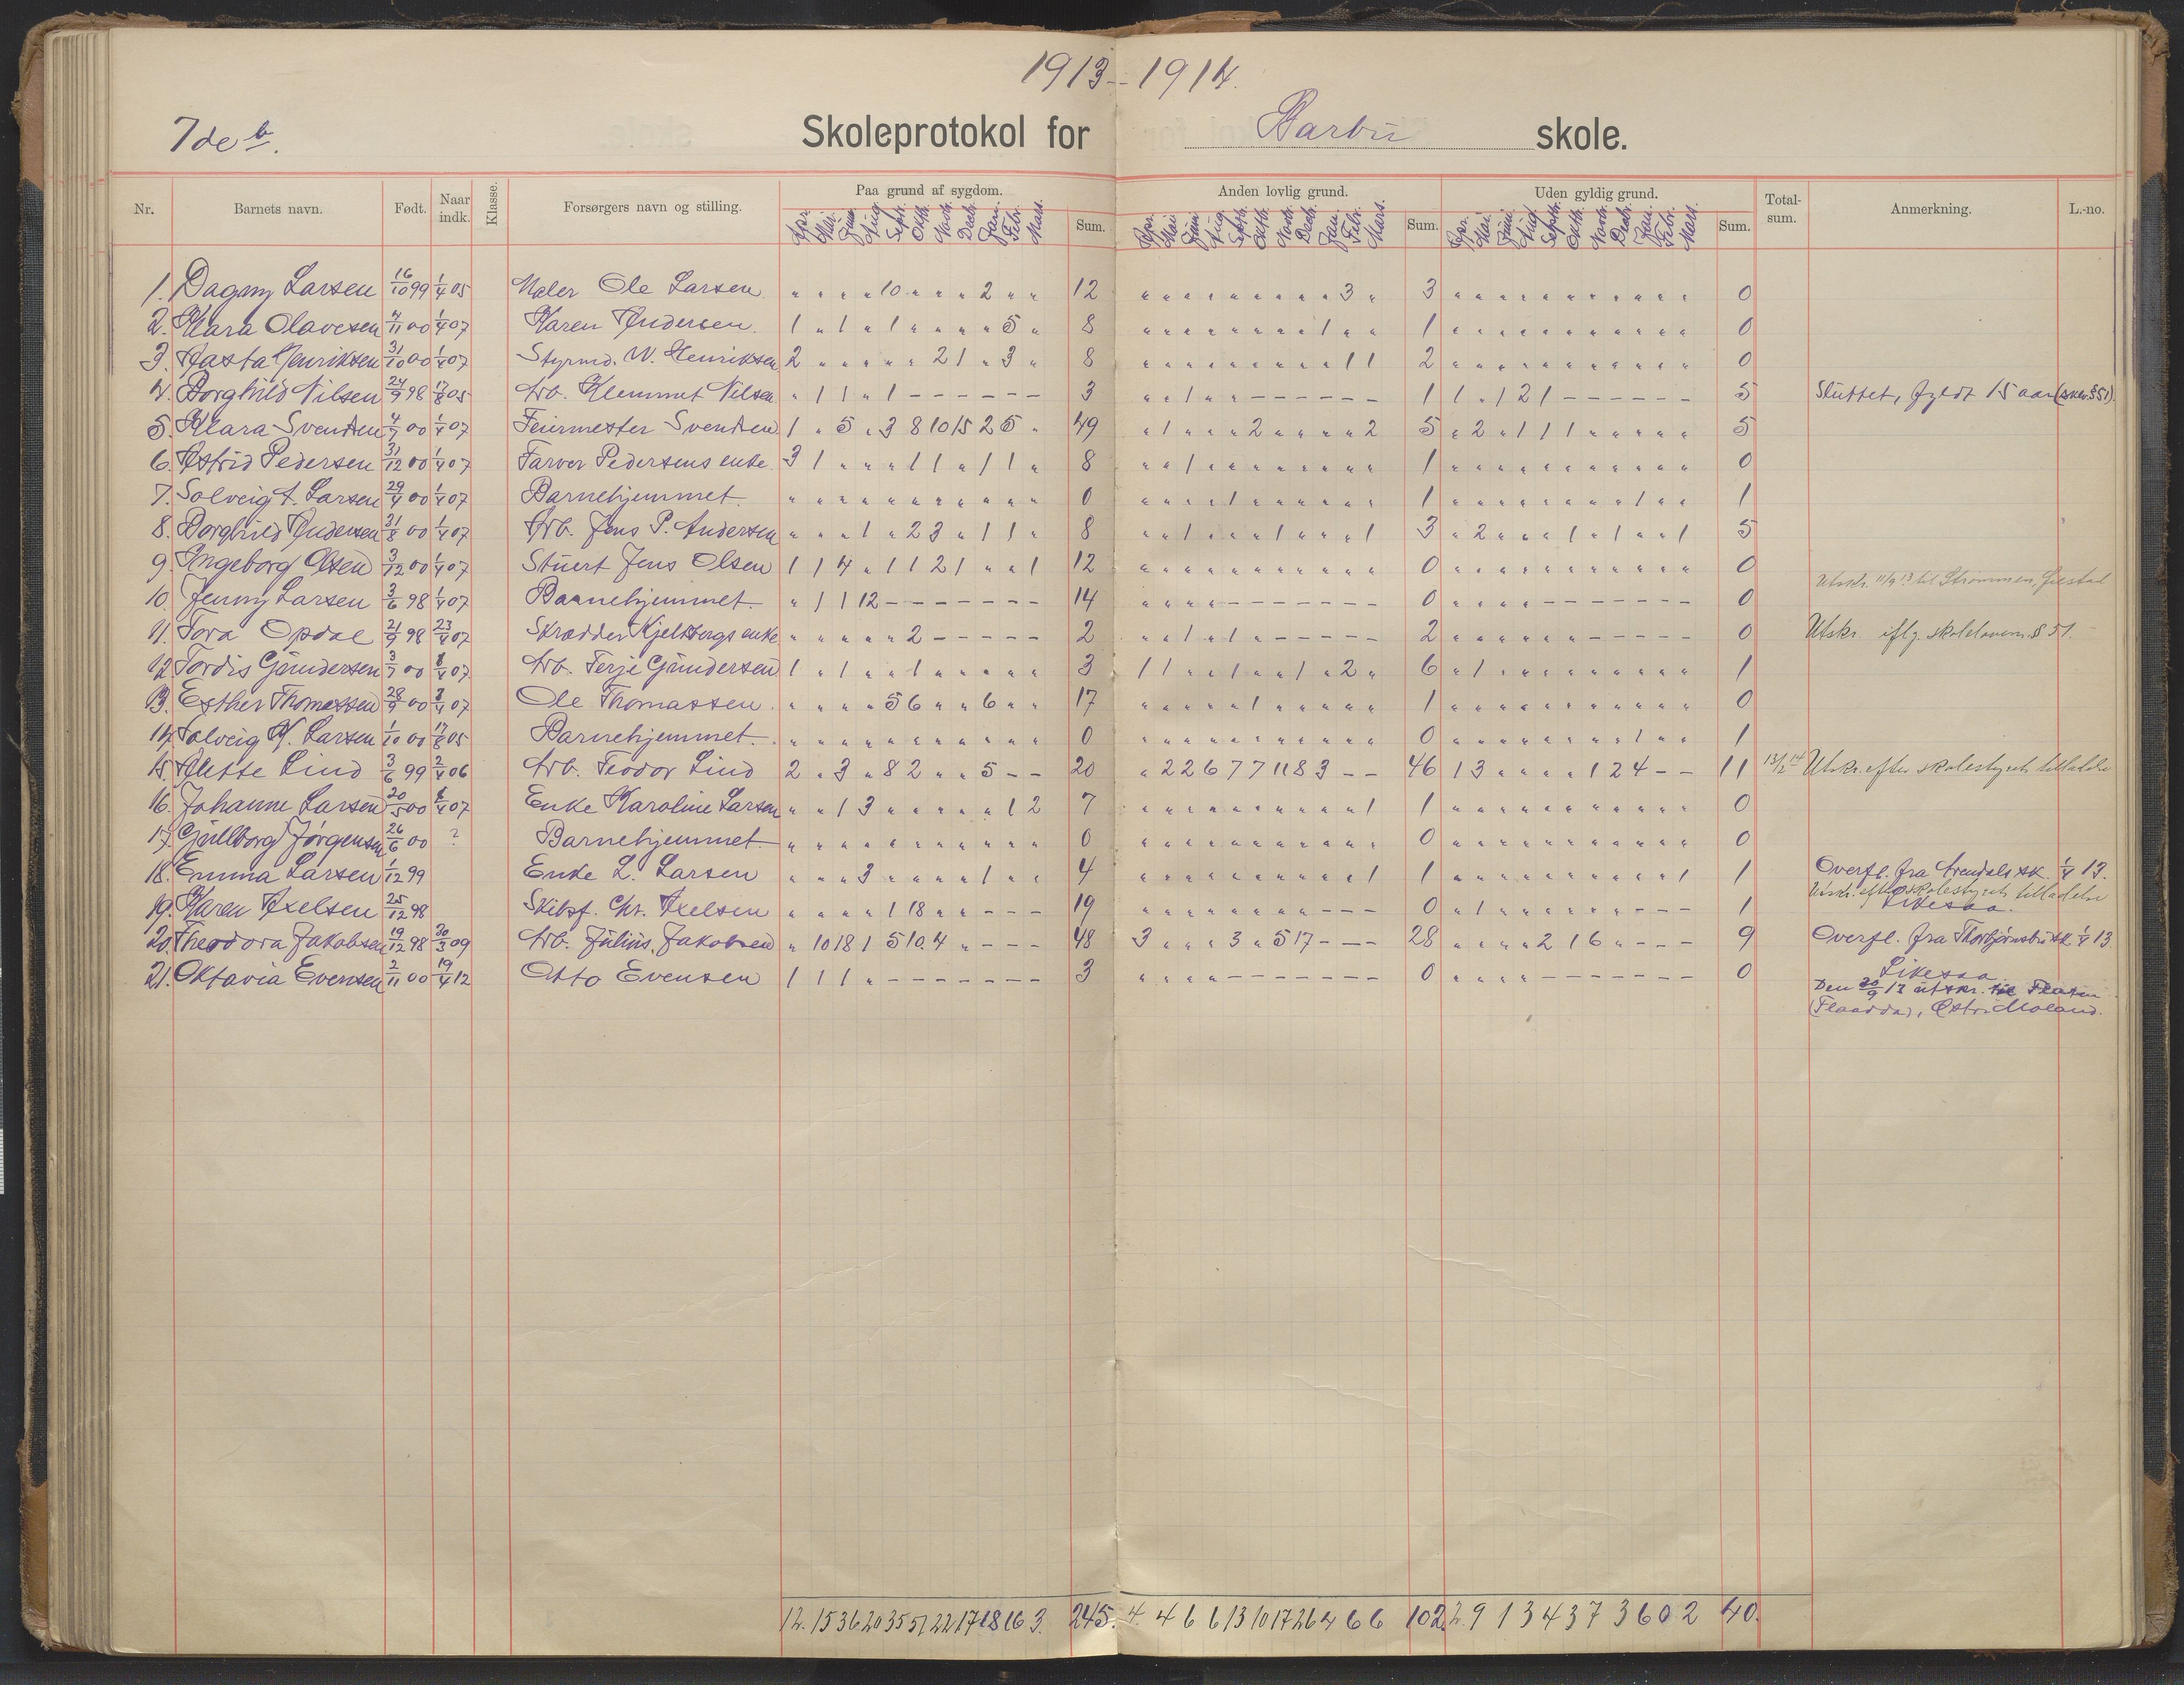 1913-1914.
7de b.
Skoleprotokol for Barbu skole.
Nr. Barnets navn. Født. Naar indk. Klasse. Forsørgers navn og stilling. Paa grund af sygdom. Sum. Anden lovlig grund. Sum. Uden gyldig grund. Sum. Total-sum. Anmerkning. L.-no.
Apr. Mai. Juni Aug. Septr. Oktb. Novbr. Decbr. Jan. Febr. Mars. Apr. Mai Juni Aug Septr. Oktbr. Novbr. Decbr. Jan. Febr. Mars. Apr. Mai. Juni Aug. Septbr. Oktb. Novbr. Decbr. Jan. Febr. Mars.
1. Dagny Larsen 16/10 99 1/4 05 Maler Ole Larsen. " " " " 10 " " " 2 " " 12 " " " " " " " " " 3 " 3 " " " " " " " " " " " 0
2. Klara Olavesen 4/11 00 1/4 07 Karen Andersen. 1 " 1 " 1 " " " " 5 " 8 " " " " " " " " 1 " " 1 " " " " " " " " " " " 0
3. Aasta Henriksen 31/10 00 1/4 07 Styrmd. W. Henriksen 2 " " " " " 2 1 " 3 " 8 " " " " " " " " " 1 1 2 " " " " " " " " " " " 0
4. Borghild Nilsen 24/9 98 17/8 05 Arb. Klemmet Nilsen " 1 1 " 1 - - - - - - 3 " " 1 " " - - - - - - 1 1 " 1 2 1 - - - - - - 5 Sluttet, fyldt 15 aar (sklov. § 51).
5. Klara Svendsen 4/7 00 1/4 07 Feiermester Svendsen 1 " 5 " 3 8 10 15 2 5 " 49 " 1 " " " 2 " " " " 2 5 " 2 " 1 1 1 " " " " " 5
6. Astrid Pedersen 31/12 00 1/4 07 Farver Pedersens enke. 3 1 " " " 1 1 " 1 1 " 8 " " 1 " " " " " " " " 1 " " " " " " " " " " " 0
7. Solveig A. Larsen 29/4 00 1/4 07 Barnehjemmet. " " " " " " " " " " " 0 " " " " 1 " " " " " " 1 " " " " " " " " 1 " " 1
8. Borghild Andersen 31/8 00 1/4 07 Arb. Jens P. Andersen " " " 1 " 2 3 " 1 1 " 8 " " 1 " " " 1 " " " 1 3 " 2 " " " 1 " 1 " " 1 5
9. Ingeborg Olsen 3/12 00 1/4 07 Stuert Jens Olsen 1 1 4 " 1 1 2 1 " " 1 12 " " " " " " " " " " " 0 " " " " " " " " " " " 0
10. Jenny Larsen 3/6 98 1/4 07 Barnehjemmet. " 1 1 12 - - - - - - - 14 " " " " - - - - - - - 0 " " " " - - - - - - - 0 Utskr. 11/9 13 til Strømmen, Øiestad
11. Tora Opdal 21/9 98 23/4 07 Skrædder Kjeltbergs enke " " " " " 2 - - - - - 2 " " 1 " 1 " - - - - - 2 " " " " " " - - - - - 0 Utskr. iflg. skoleloven. § 51.
12. Tordis Gundersen 3/7 00 1/4 07. Arb. Terje Gundersen 1 " 1 " " 1 " " " " " 3 1 1 " " 1 " 1 " 2 " 6 " 1 " " " " " " " " " 1
13. Esther Thomassen 28/9 00 1/4 07 Ole Thomassen. " " " " 5 6 " " 6 " " 17 " " " " " 1 " " " " " 1 " " " " " " " " " " " 0
14. Solveig K. Larsen 1/10 00 17/8 05 Barnehjemmet. " " " " " " " " " " " 0 " " " " " " " " " " " 0 " " " " " " " " 1 " " 1
15. Alette Lind 3/6 99 2/4 06 Arb. Teodor Lind 2 " 3 " 8 2 " " 5 - - 20 " 2 2 6 7 7 11 8 3 - - 46 1 3 " " " " 1 2 4 - - 11 13/2 14 Utskr. efter skolestyrets tilladelse
16. Johanne Larsen 20/5 00 1/4 07 Enke Karoline Larsen " " 1 3 " " " " " 1 2 7 " " " " " " " " " " 1 1 " " " " " " " " " " " 0
17. Gullborg Jørgensen 26/6 00 ? Barnehjemmet. " " " " " " " " " " " 0 " " " " " " " " " " " 0 " " " " " " " " " " " 0
18. Emma Larsen 1/12 99 Enke L. Larsen " " " 3 " " " " 1 " " 4 " " " " " " " " " " 1 1 " " " " " " " " " " 1 1 Overfl. fra Arendals sk. 1/4 13.
19. Karen Axelsen 25/12 98 Skibsf. Chr. Axelsen " " " " 1 18 " " - - - 19 " " " " " " " " - - - 0 " 1 " " " " " " - - - 1 Utskr. efter skolestyrets tilladelse
Likesaa.
20. Theodora Jakobsen 19/12 98 30/3 09 Arb. Julius Jakobsen " 10 18 1 5 10 4 " - - - 48 3 " " " 3 " 5 17 - - - 28 " " " " 2 1 6 " - - - 9 Overfl. fra Thorbjørnsbu sk. 1/4 13
Likesaa.
21. Oktavia Evensen 2/11 00 19/4 12 Otto Evensen 1 1 1 " - - - - - - - 3 " " " " - - - - - - - 0 " " " " - - - - - - - 0 Den 20/9 13 utskr. til Flaten
(Flaadda), Østri Moland.
12. 15 36 20 35 51 22 17 18 16 3. 245. 4. 4 6 6 13 10 17 26 4 6 6 102. 2. 9 1 3 4 3 7 3 6 0 2 40.